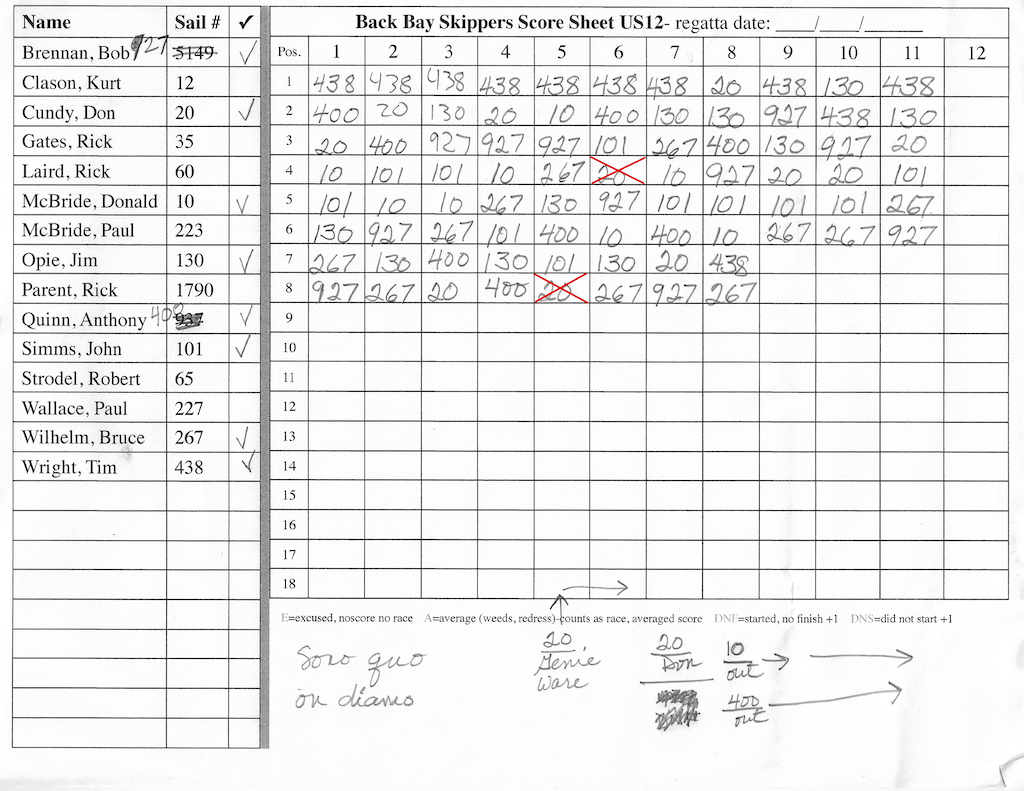 Name Sail # ✓
Brennan, Bob 927 5149 ✓
Clason, Kurt 12
Cundy, Don 20 ✓
Gates, Rick 35
Laird, Rick 60
McBride, Donald 10 ✓
McBride, Paul 223
Opie, Jim 130 ✓
Parent, Rick 1790
Quinn, Anthony 400 937 ✓
Simms, John 101 ✓
Strodel, Robert 65
Wallace, Paul 227
Wilhelm, Bruce 267 ✓
Wright, Tim 438 ✓
Back Bay Skippers Score Sheet US12- regatta date: ____/____/______
Pos. 1 2 3 4 5 6 7 8 9 10 11 12
1 438 438 438 438 438 438 438 20 438 130 438
2 400 20 130 20 10 400 130 130 927 438 130
3 20 400 927 927 927 101 267 400 130 927 20
4 10 101 101 10 267 20 10 927 20 20 101
5 101 10 10 267 130 927 101 101 101 101 267
6 130 927 267 101 400 10 400 10 267 267 927
7 267 130 400 130 101 130 20 438
8 927 267 20 400 20 267 927 267
9
10
11
12
13
14
15
16
17
18
E=excused, noscore no race A=average (weeds, redress)-counts as race, averaged score DNF=started, no finish +1 DNS=did not start +1
20 20 10
Genie Don out
Ware 400
out
Sono quo
on diamo